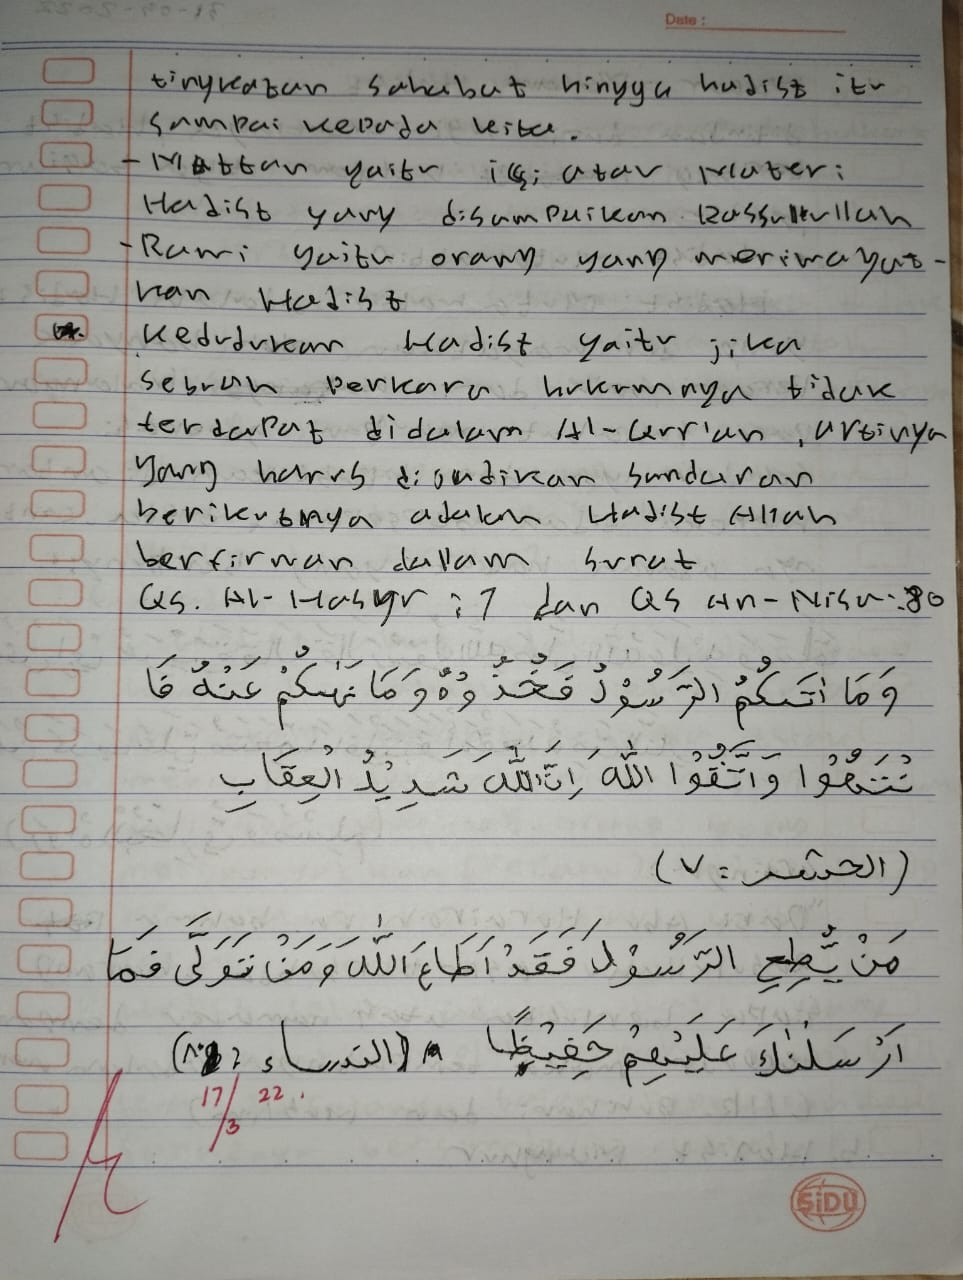 Date :
tingkatan sahabat hingga hadist itu
sampai kepada kita.
- Mattan yaitu isi atau Materi
Hadist yang disampaikan Rassulullah
- Rawi yaitu orang yang meriwayat-
kan Hadist
kedudukan Hadist yaitu jika
sebuah perkara hukumnya tidak
terdapat didalam Al-Qur'an, artinya
yang harus dijadikan sandaran
berikutnya adalah Hadist Allah
berfirman dallam surat
Qs. Al-Hasyr : 7 dan QS An-Nisa : 80
وَمَا اٰتٰىكُمُ الرَّسُوْلُ فَخُذُوْهُ وَمَا نَهٰىكُمْ عَنْهُ فَا
نْتَهُوْا وَاتَّقُوْا اللّٰهَ اِنَّ اللّٰهَ شَدِيْدُ الْعِقَابِ
(الحشر : ٧)
مَنْ يُّطِعِ الرَّسُوْلَ فَقَدْ اَطَاعَ اللّٰهَ وَمَنْ تَوَلّٰى فَمَا
اَرْسَلْنٰكَ عَلَيْهِمْ حَفِيْظًا
17/3 22.
SiDU